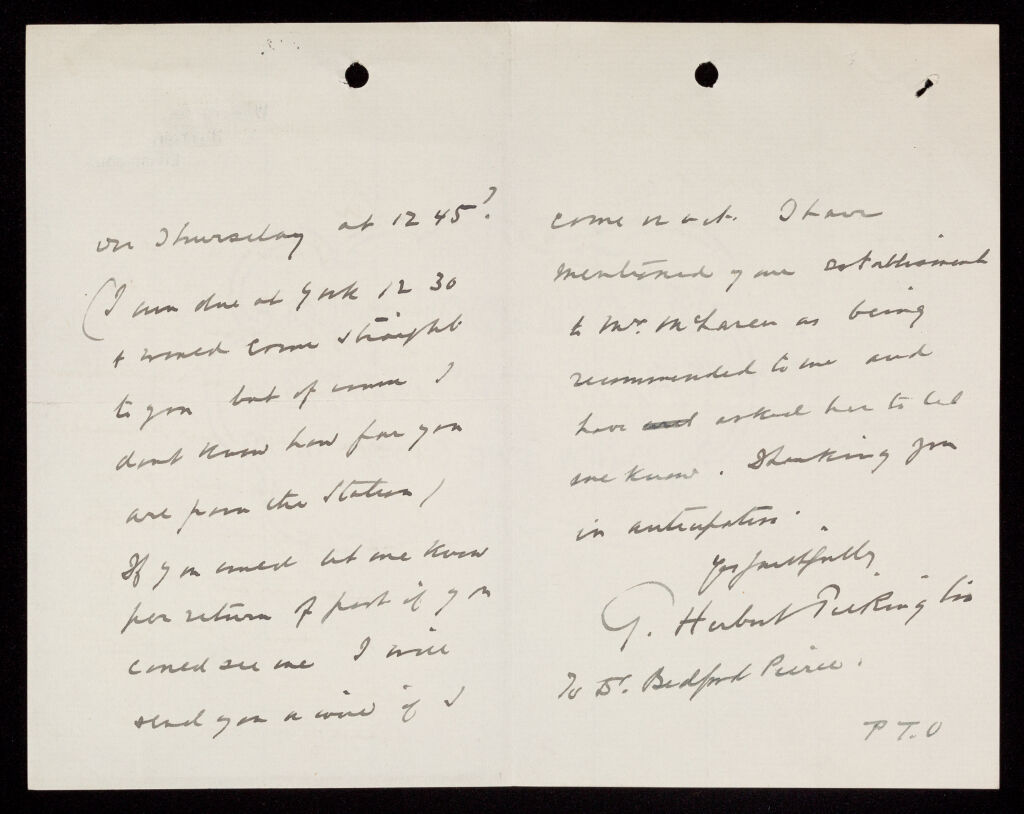 on Thursday at 12 45?
(I am due at York 12 30
& would come straight
to you but of course I
dont know how far you
are from the Station)
If you would let me know
per return of post if you
could see me I will
send you a wire if I
come or not. I have
mentioned your establishment
to Mrs. McLaren as being
recommended to me and
have and asked her to let
me know. Thanking you
in anticipation.
Yrs faithfully
G. Herbert Pilkington
To Dr. Bedford Pierce.
P T. O